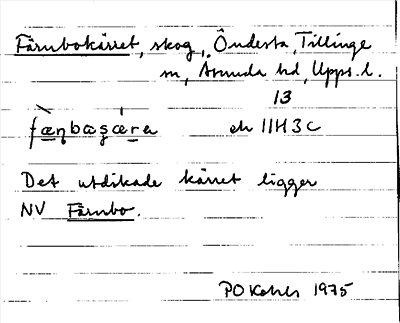 Färnbokärret, skog, Öndesta, Tillinge
sn, Åsunda hd, Upps. l.
13
fænbæsæra ek 11H3c
Det utdikade kärret ligger
NV Färnbo.
PO 1975